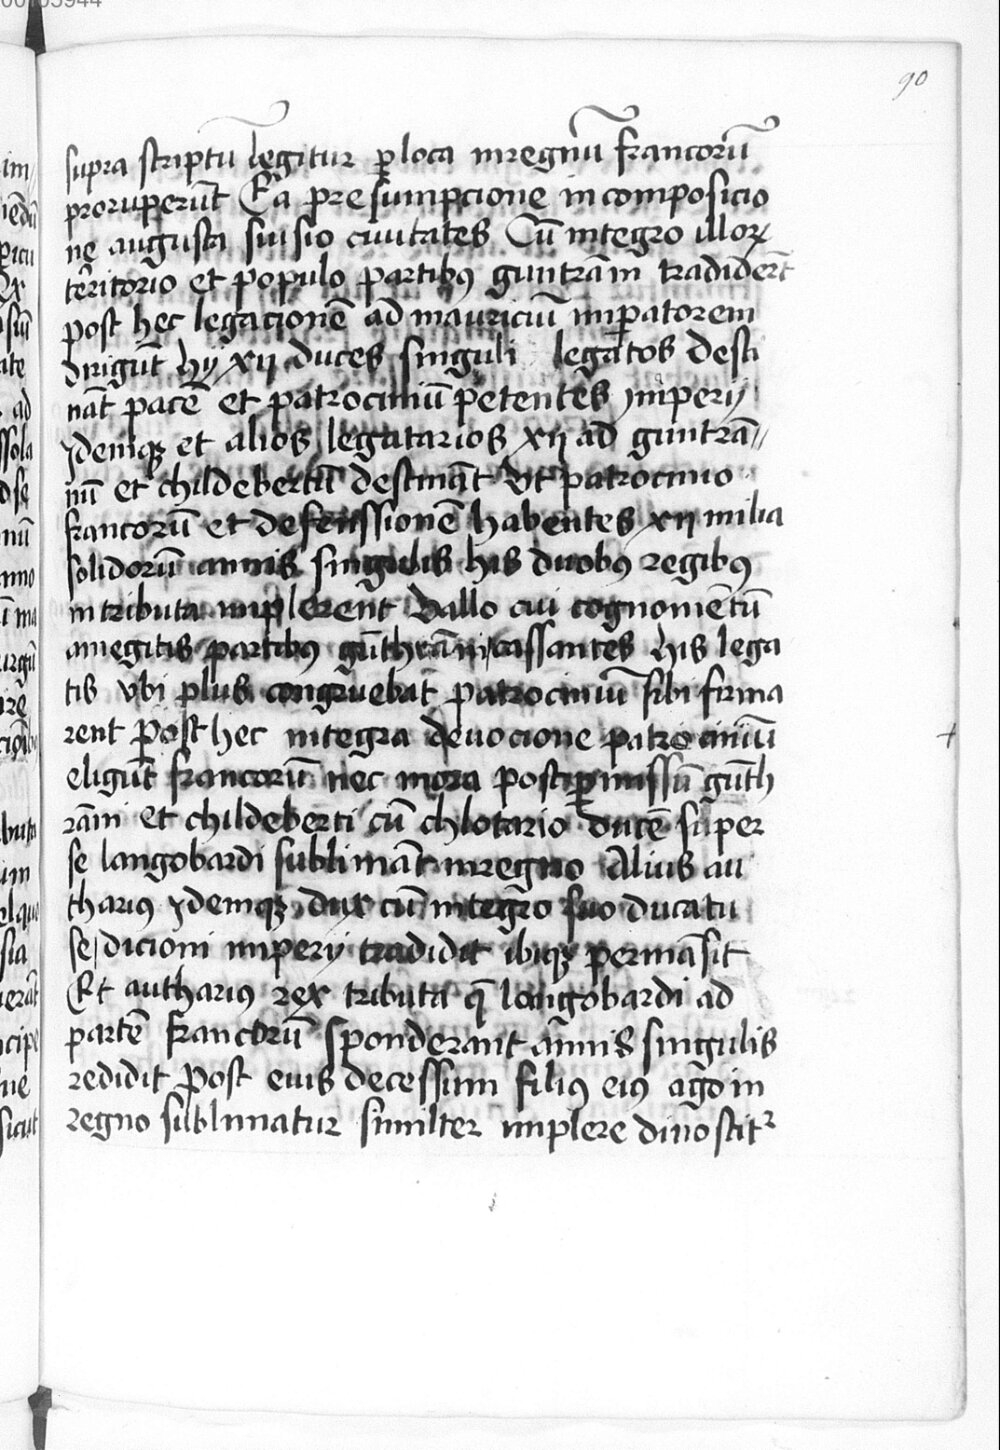 90
supra scriptū legitur ꝑ loca in regnū francorū
proruperūt Ea presumpcione in composicio
ne augusta siusio ciuitates Cū integro illoꝝ
territorio et populo partibꝰ guntrām tradiderūt
post hec legacionē ad mauriciū imperatorem
dirigūt hij xij duces singuli legatos desti
nāt pacē et patrociniū petentes ymperij
ydemqꝫ et alios legatarios xij ad guntrā//
nū et childebertū destināt Vt patrocinio
francorū et defenssionē habentes xij milia
solidorū annis singulis his duobꝰ regibꝰ
in tributa implerent Vallo cui cognomētū
amegitis partibꝰ gūthrāni cassantes his lega
tis vbi plus congruebat patrociniū sibi firma
rent Post hec integra deuocione patrociniū
eligūt francorū nec mora post ꝑmissū gūth
rāni et childeberti cū chlotario ducē super
se langobardi sublimāt in regno Alius au
tharius ydemqꝫ dux cū integro suo ducatu
se dicioni imperij tradidit ibiqꝫ permāsit
Et autharius rex tributa q̄ langobardi ad
partē francorū sponderant annis singulis
redidit Post euis decessum filiꝰ eiꝰ ago in
regno sublimatur similter implere dinoscitᷣ